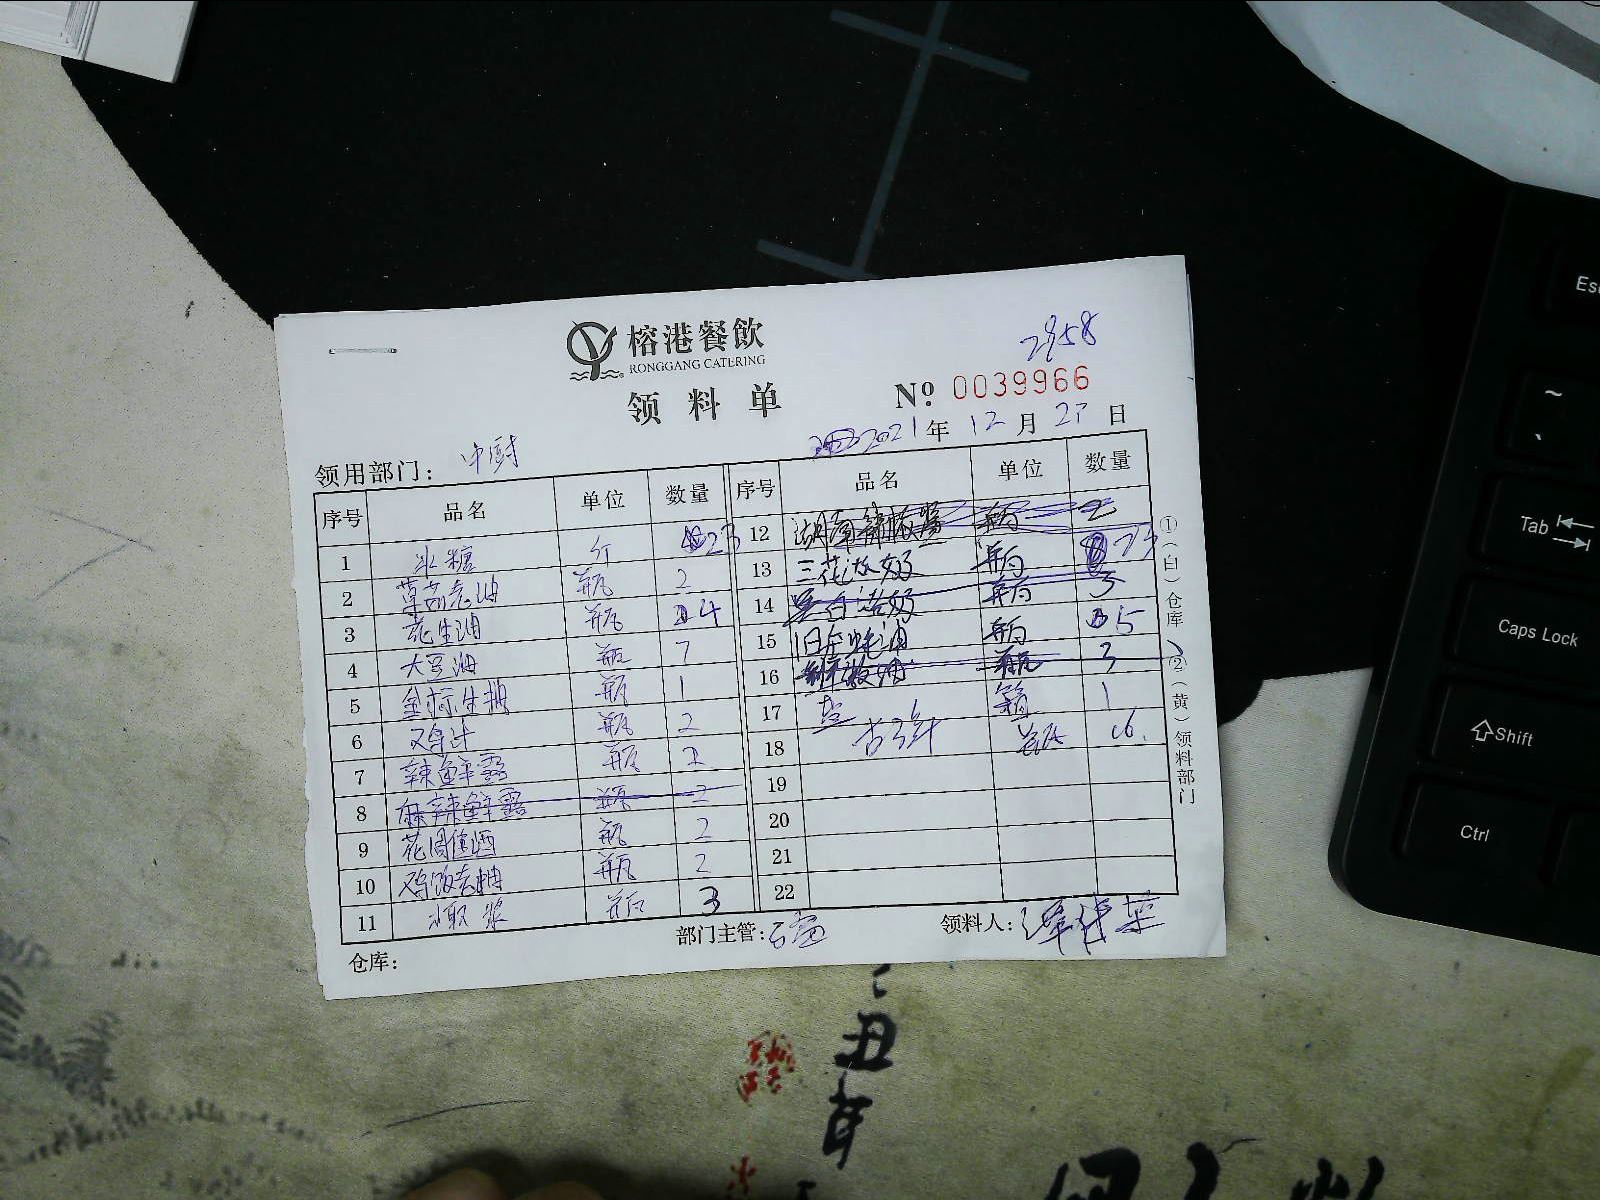 榕港餐飲
RONGGANG CATERING
2958
领料单
No 0039966
领用部门: 中厨
2021年 12月 27日
序号 品名 单位 数量 序号 品名 单位 数量
1 冰糖 斤 23
2 草菇老抽 瓶 2
3 花生油 瓶 4
4 大豆油 瓶 7
5 金标生抽 瓶 1
6 瓶 2
7 辣鲜露 瓶 2
8 麻辣鲜露 瓶 2
9 花雕酒 瓶 2
10 鸡饭老抽 瓶 2
11 瓶 3
12 湖南辣椒酱 瓶 2
13 三花淡奶 瓶
14 瓶 3
15 旧庄蚝油 瓶 5
16 瓶 3
17 盐 箱 1
18
19
20
21
22
①(白)仓库 ②(黄)领料部门
仓库:
部门主管:
领料人:
丑
年
Esc
~
、
Tab
Caps Lock
Shift
Ctrl